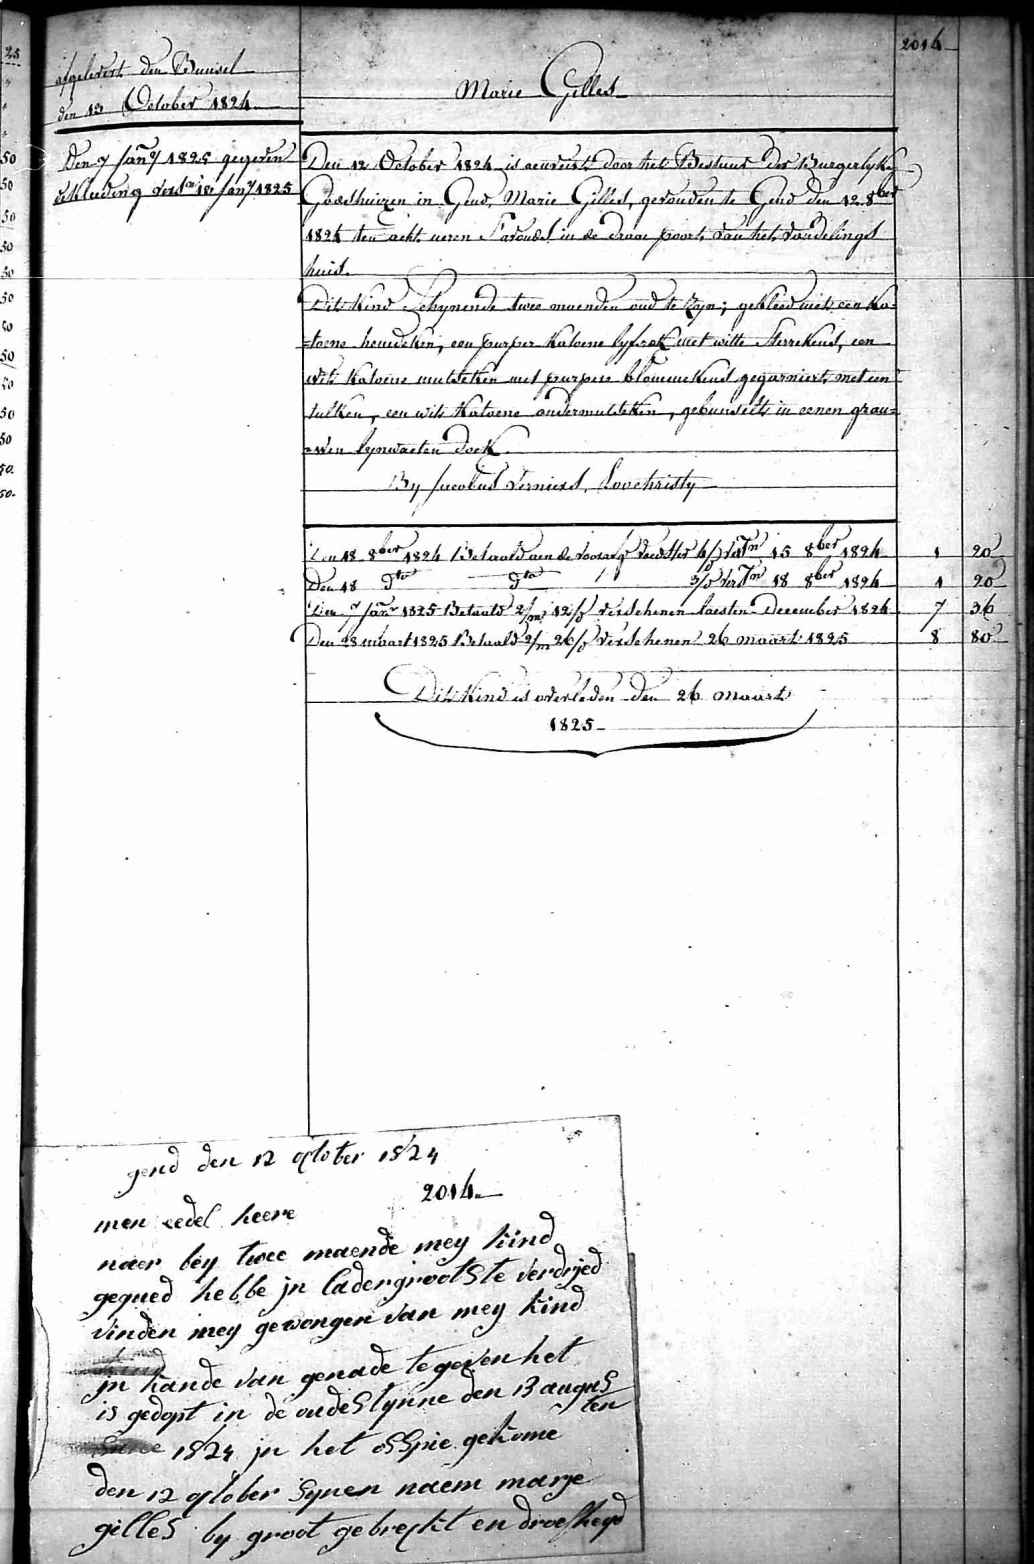 2014
afgelevert den Bunsel
den 13 October 1824
Marie Gilles
Den 7 Jany 1825 gegeven
de kleeding verst. 18 Jany 1825
Den 12 October 1824 is aenveirt door het Bestuur der Burgerlyke
Godshuizen in Gend, Marie Gilles, gevonden te Gend den 12 8ber
1824 ten acht ueren s'avonds in de draae poort van het vondelings
huis.
Dit kind schynende twee maenden oud te zyn; gekleed met een ka=
=toene hemdeken, een purper katoene lyfrok met witte sterrekens, een
wit katoene mutseken met purpere blommekens gegarniert met een
tulleken, een wit katoene ondermutseken, gebunselt in eenen grau=
=wen lynwaeten doek.
By Jacobus Verniers, Loochristy
Den 18 8ber 1824 Betaald aen de voorafg. voedster 4/d ver Tm 15 8ber 1824 1 20
Den 18 dto dto 3/d ver Tm 18 8ber 1824 1 20
Den 7 Janr 1825 Betaald 2/m 12/d verschenen laesten December 1824 7 36
Den 28 maart 1825 Betaald 2/m 26/d verschenen 26 maart 1825 8 80
Dit kind is overleden den 26 maart
1825
gend den 12 october 1824
2014
men eedel heere
naer bey twee maende mey kind
gegued hebbe jn lader grootste verdrjed
vinden mey gewongen van mey kind
jn hande van genade te geven het
is gedopt in de oudeStynne den 13 augus
ten
1824 jn het osSpie gekome
den 12 october Synen naem marje
gilles by groot gebrejkt en droefheyd